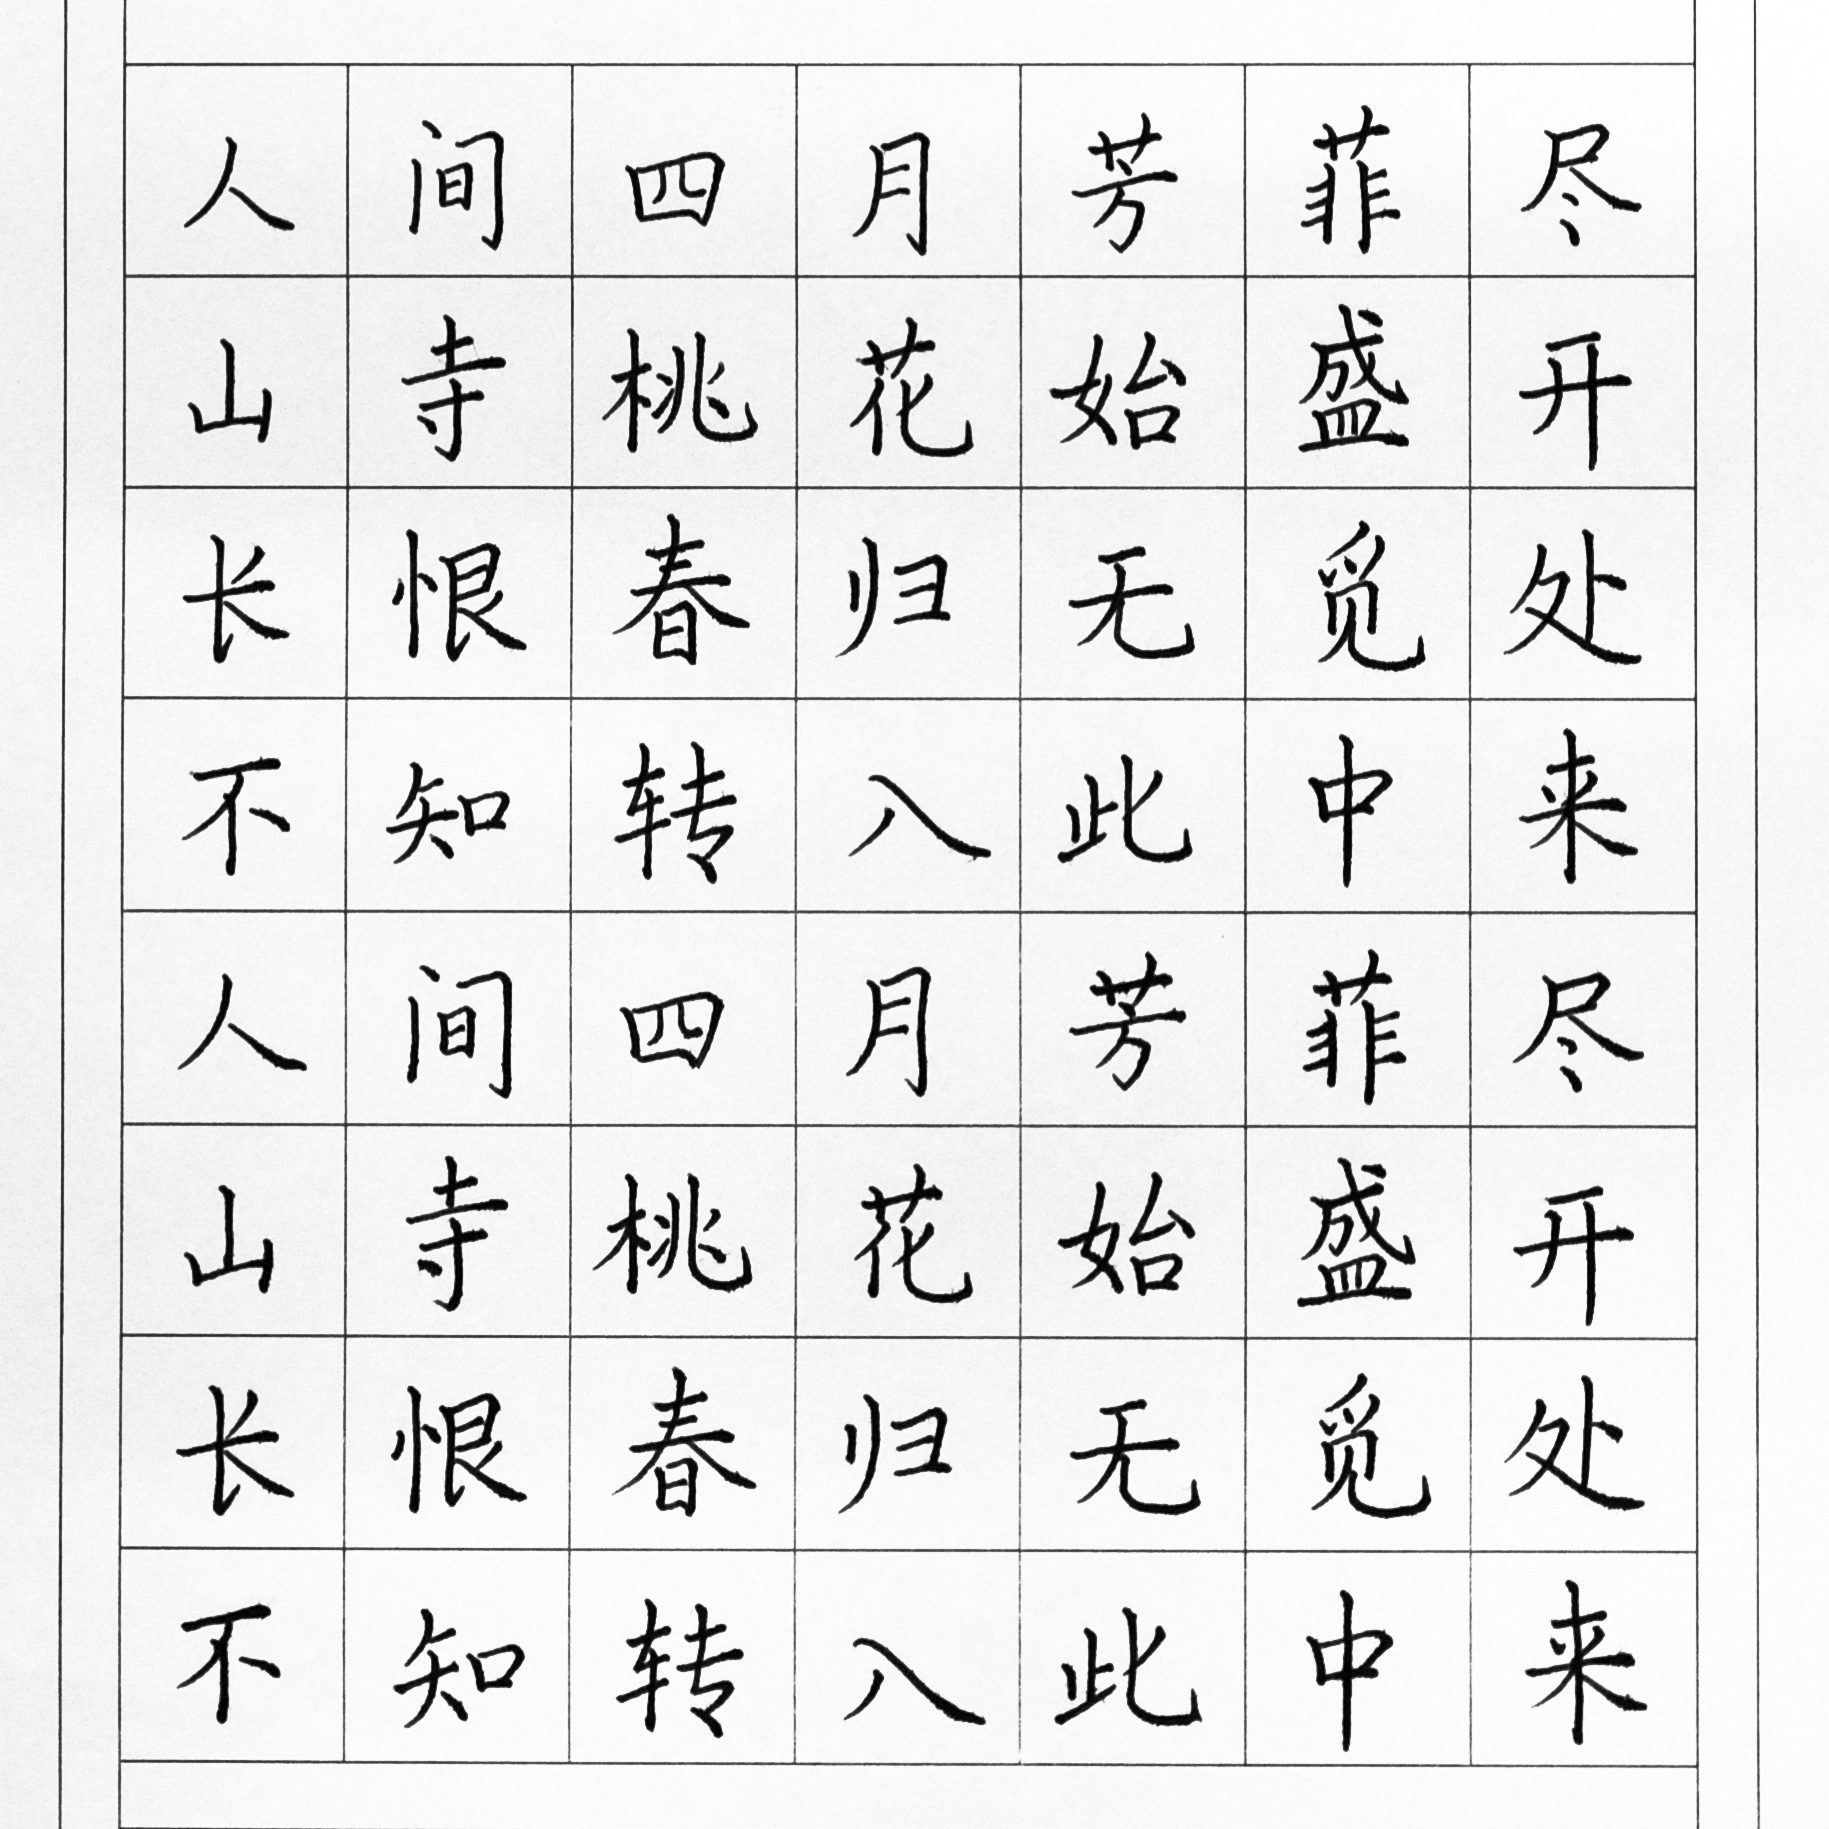 人间四月芳菲尽
山寺桃花始盛开
长恨春归无觅处
不知转入此中来
人间四月芳菲尽
山寺桃花始盛开
长恨春归无觅处
不知转入此中来